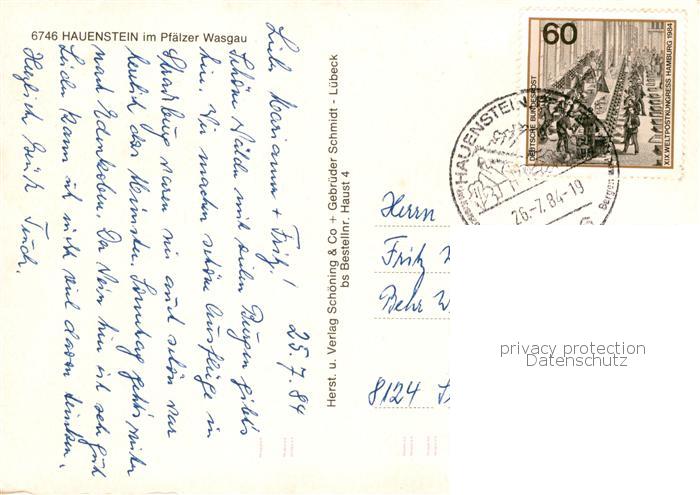 6746 HAUENSTEIN im Pfälzer Wasgau
Liebe Marianne + Fritz!
25.7.84
Schöne Wälder mit vielen Burgen gibt's
hier. Wir machen schöne Ausflüge in
Straßburg waren wir auch schön war
herrlich das Münster. Sonntag geht's weiter
nach Edenkoben. Der Wein hier ist sehr gut
Leider kann ich nicht viel davon trinken.
Herzliche Grüße
Herst. u. Verlag Schöning & Co + Gebrüder Schmidt - Lübeck
bs Bestellnr. Haust 4
60
DEUTSCHE BUNDESPOST
XIX. WELTPOSTKONGRESS HAMBURG 1984
HAUENSTEIN
26.-7.84-19
Herrn
Fritz
Behr
8124
privacy protection
Datenschutz